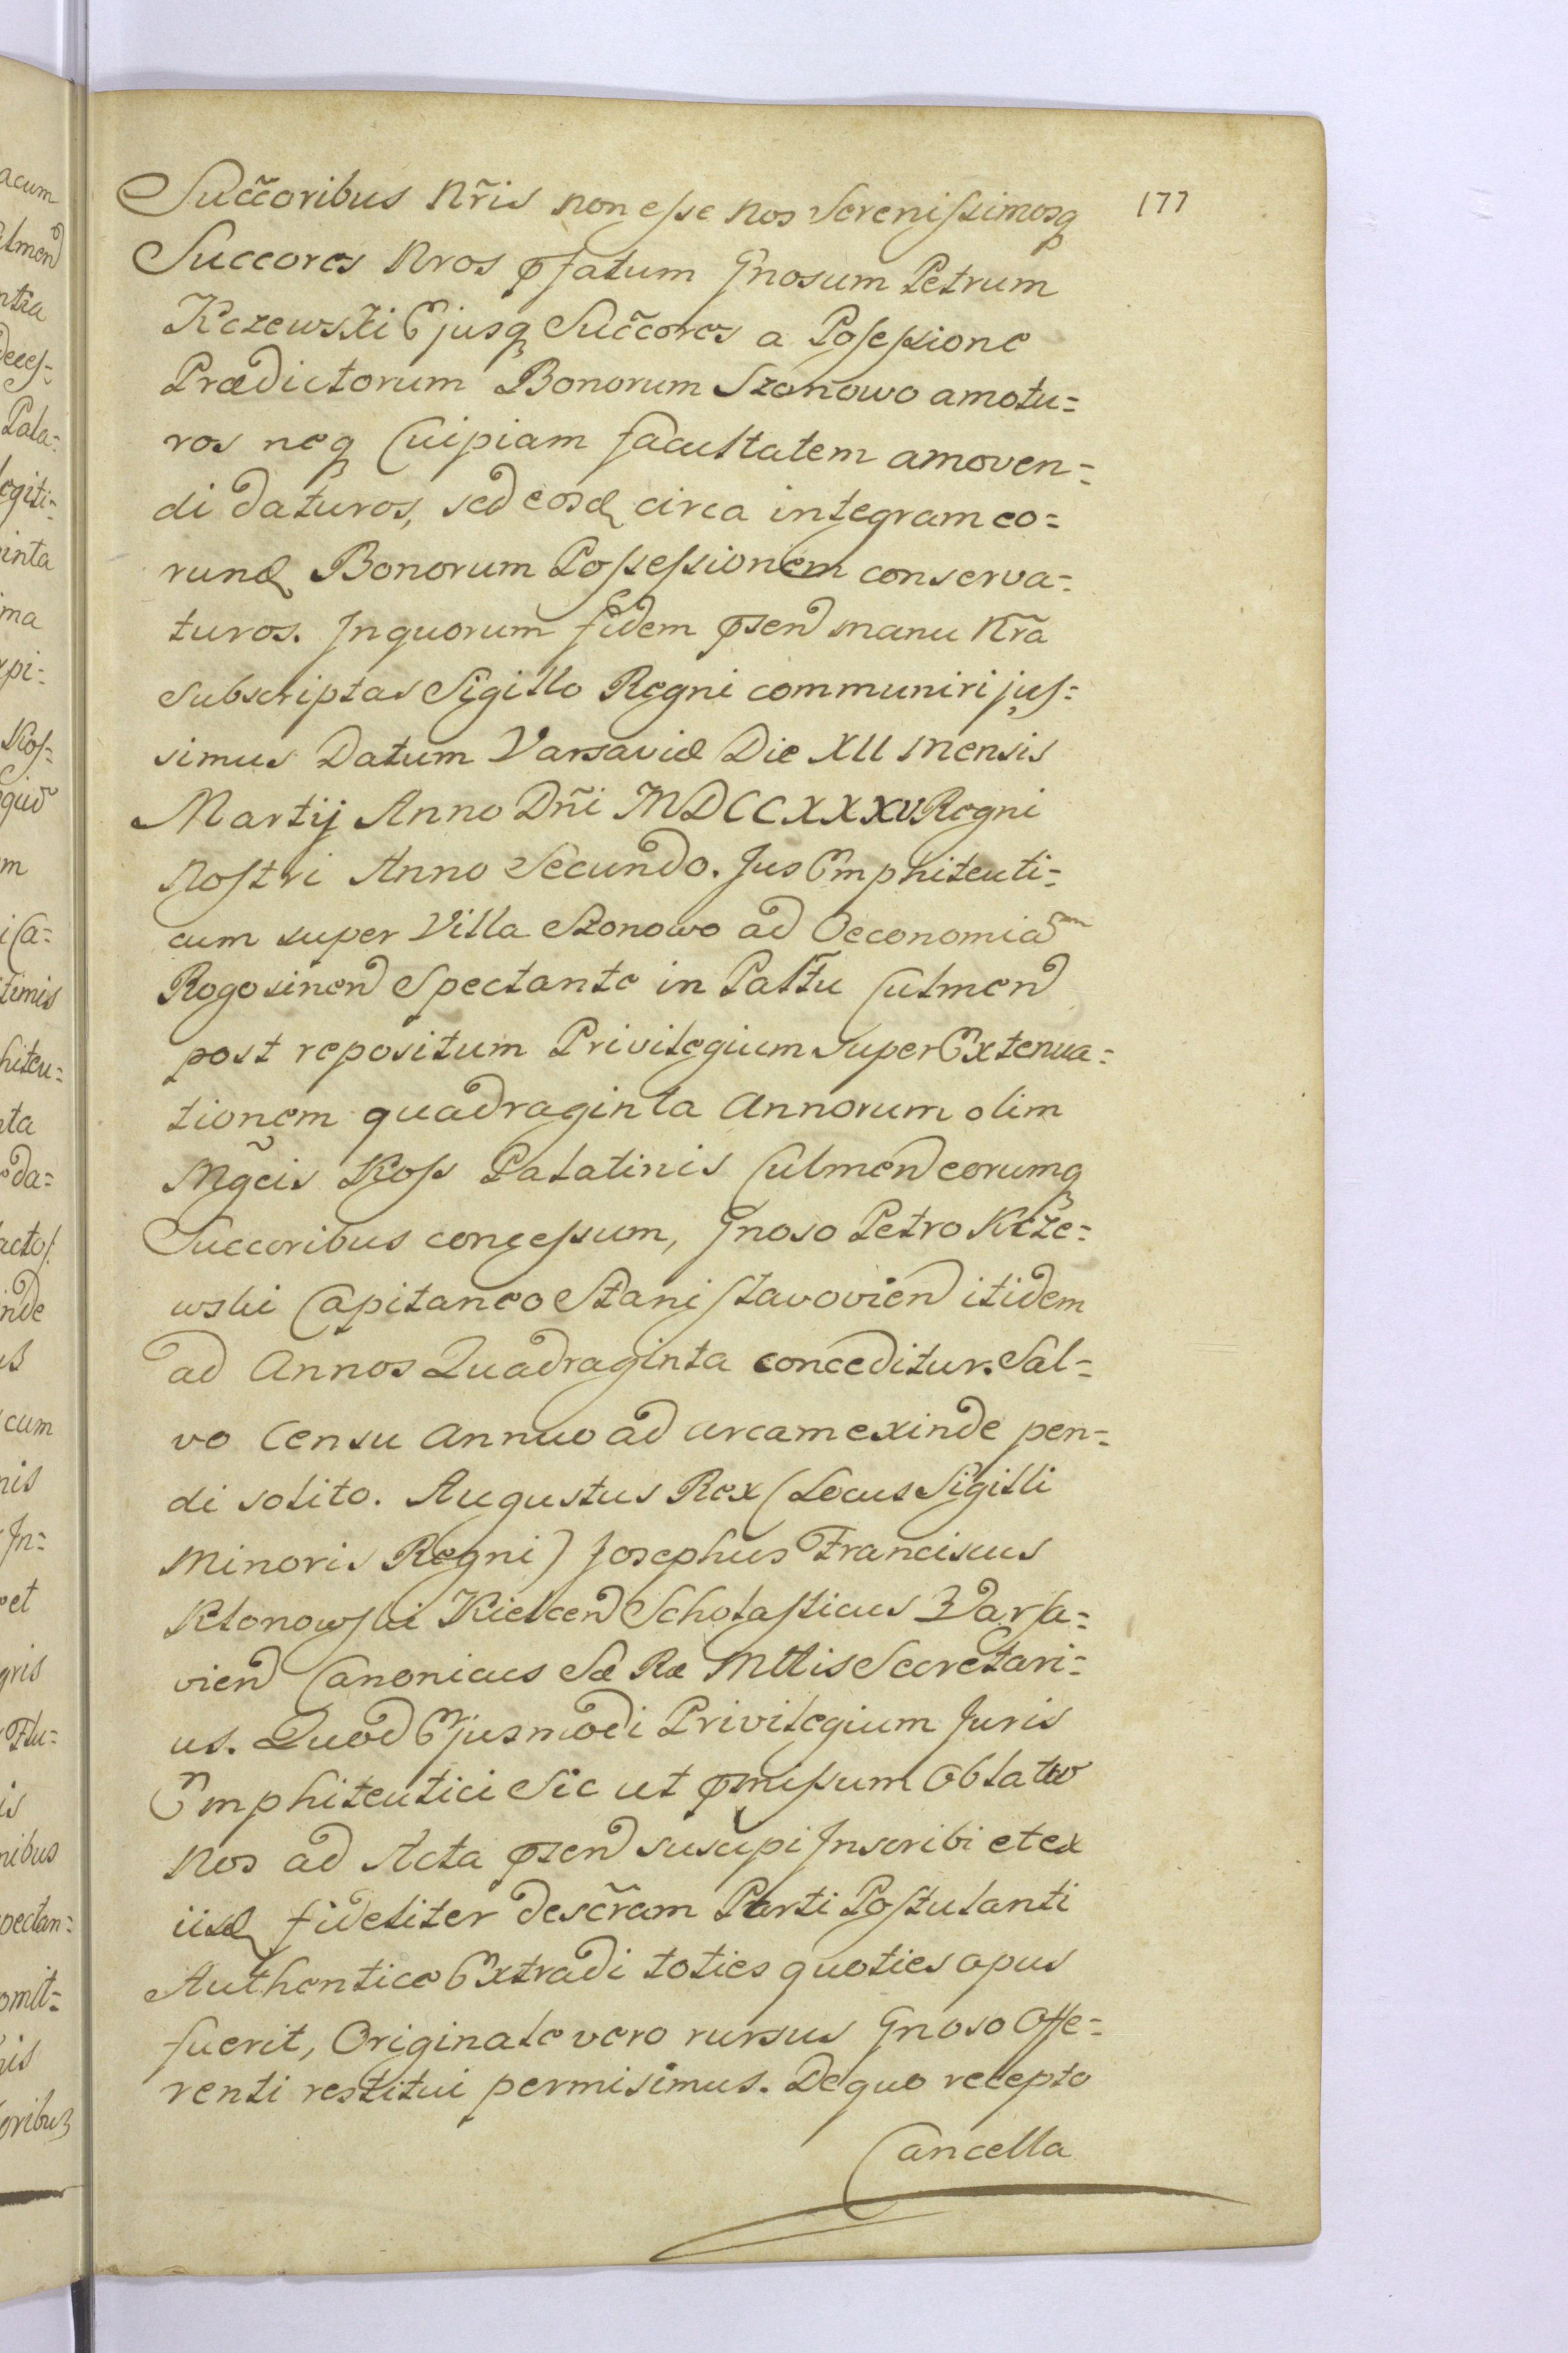 177
Succ̃oribus Nr̃is non eſse nos Sereniſsimosq
Succores Nros pfatum Gnosum Petrum
Kczewski Ejusq Succ̃ores a Poſeſsione
Prædictorum Bonorum Szonowo amotu=
ros neq Cuipiam facultatem amoven=
di daturos, sed eosd circa integram eo=
rund Bonorum Poſseſsionem conserva=
turos. In quorum fidem psen manu Nr̃a
subscriptas Sigillo Regni communiri juſ=
simus Datum Varsaviæ Die XII mensis
Martij Anno Dñi MDCCXXXV Regni
Noſtri Anno Secundo. Jus Emphiteuti=
cum super Villa Szonowo ad Oeconomiam
Rogosinen Spectante in Palttu Culmen
post repositum Privilegium super Extenua=
tionem quadraginta Annorum olim
Mg̃cis Koſs Palatinis Culmen eorumq
Succoribus conceſsum, Gnoso Petro Kcze=
wski Capitaneo Staniſlavovien itidem
ad Annos Quadraginta conceditur. Sal=
vo Censu Annuo ad arcam exinde pen=
di solito. Augustus Rex (Locus Sigilli
Minoris Regni) Josephus Franciscus
Klonowſki Kielcen Scholaſticus Varſa=
vien Canonicus Sæ Ræ Mttis Secretari=
us. Quod Ejusmodi Privilegium Juris
Emphiteutici Sic ut pmiſsum Oblatu
Nos ad Acta psen suscipi Inscribi et ex
iisd fideliter descr̃am Parti Poſtulanti
Authentice Extradi toties quoties opus
fuerit, Originale vero rursus Gnoso Offe=
renti restitui permisimus. De quo recepto
Cancella